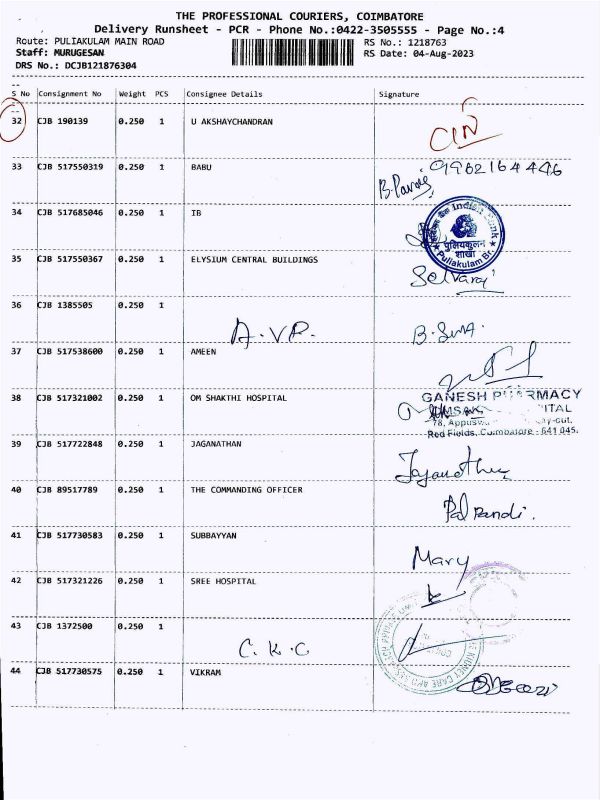 THE PROFESSIONAL COURIERS, COIMBATORE
Delivery Runsheet - PCR - Phone No.:0422-3505555 - Page No.:4
Route: PULIAKULAM MAIN ROAD RS No.: 1218763
Staff: MURUGESAN RS Date: 04-Aug-2023
DRS No.: DCJB121876304
S No Consignment No Weight PCS Consignee Details Signature
32 CJB 190139 0.250 1 U AKSHAYCHANDRAN
33 CJB 517550319 0.250 1 BABU 9962164446
34 CJB 517685046 0.250 1 IB
Indian Bank
पुलियकुलम
शाखा
Puliakulam Br.
35 CJB 517550367 0.250 1 ELYSIUM CENTRAL BUILDINGS
Selvaraj
36 CJB 1385505 0.250 1
A.V.P.
37 CJB 517538600 0.250 1 AMEEN
38 CJB 517321002 0.250 1 OM SHAKTHI HOSPITAL
GANESH PHARMACY
78,
Red Fields, Coimbatore - 641 045.
39 CJB 517722848 0.250 1 JAGANATHAN
40 CJB 89517789 0.250 1 THE COMMANDING OFFICER
Pal Pandi.
41 CJB 517730583 0.250 1 SUBBAYYAN
Mary
42 CJB 517321226 0.250 1 SREE HOSPITAL
43 CJB 1372500 0.250 1
C.K.C
KIDNEY CARE AND
44 CJB 517730575 0.250 1 VIKRAM